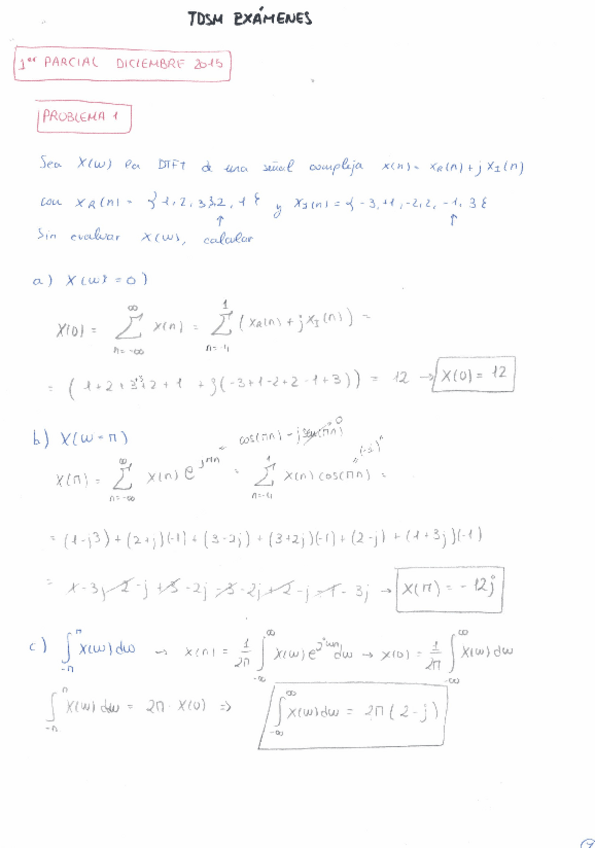 TDSM EXÁMENES
1er PARCIAL DICIEMBRE 2015
PROBLEMA 1
Sea X(ω) la DTFT de una señal compleja x(n) = xR(n) + j xI(n)
con xR(n) = {1, 2, 3, 3, 2, 1} y xI(n) = {-3, +1, -2, 2, -1, 3}
↑ ↑
Sin evaluar X(ω), calcular
a) X(ω = 0)
X(0) = ∑ x(n) = ∑ (xR(n) + j xI(n)) =
= (1+2+3+3+2+1 + j(-3+1-2+2-1+3)) = 12 → X(0) = 12
b) X(ω = π)
cos(πn) - j sen(πn) 0
(-1)^n
X(π) = ∑ x(n) e^jπn = ∑ x(n) cos(πn) =
= (1-j3) + (2+j)(-1) + (3-2j) + (3+2j)(-1) + (2-j) + (1+3j)(-1)
= 1 - 3j - 2 - j + 3 - 2j - 3 - 2j + 2 - j - 1 - 3j → X(π) = -12j
c) ∫ X(ω)dω → x(n) = 1/2π ∫ X(ω) e^jωn dω → x(0) = 1/2π ∫ X(ω) dω
∫ X(ω) dω = 2π · X(0) ⇒ ∫ X(ω)dω = 2π (2 - j)